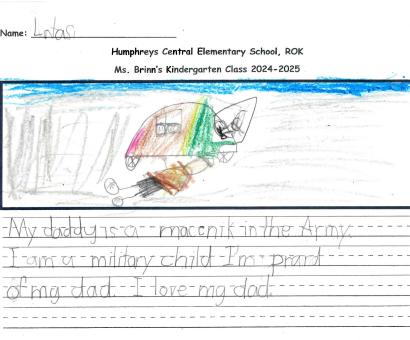 Name: Lntas
Humphreys Central Elementary School, ROK
Ms. Brinn's Kindergarten Class 2024-2025
My daddy is a macenik in the Army.
I am a military child I'm prart
of my dad. I love my dad.